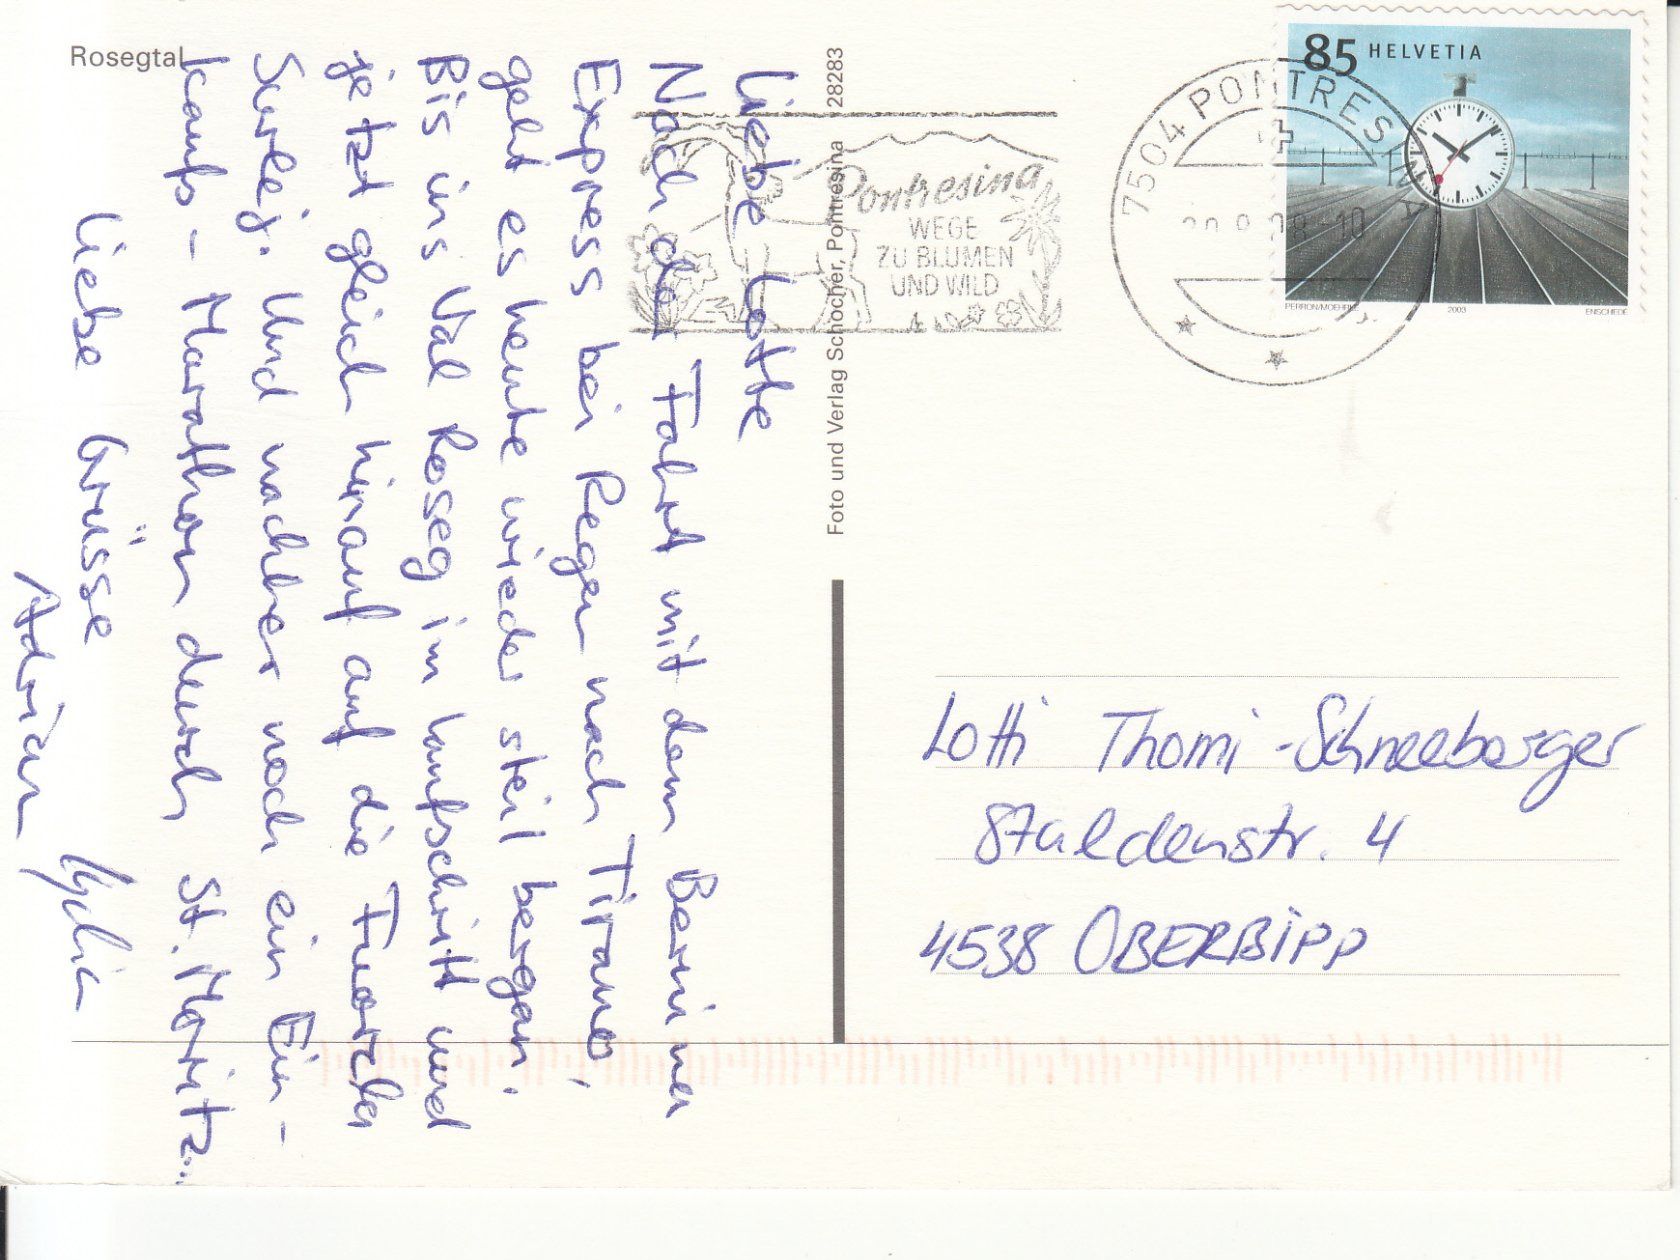 Rosegtal
Liebe Lotte
Nach der Fahrt mit dem Bernina
Express bei Regen nach Tirano,
geht es heute wieder steil bergan.
Bis ins Val Roseg im Laufschritt und
jetzt gleich hinauf auf die Fuorcla
Surlej. Und nachher noch ein Ein-
kaufs-Marathon durch St. Moritz...
Liebe Grüsse
Adrian
Foto und Verlag Schocher, Pontresina 28283
Pontresina
WEGE
ZU BLUMEN
UND WILD
7504 PONTRESINA
85 HELVETIA
PERRON/MOEHRLE 2003 ENSCHEDE
Lotti Thomi-Schneeberger
Staldenstr. 4
4538 OBERBIPP